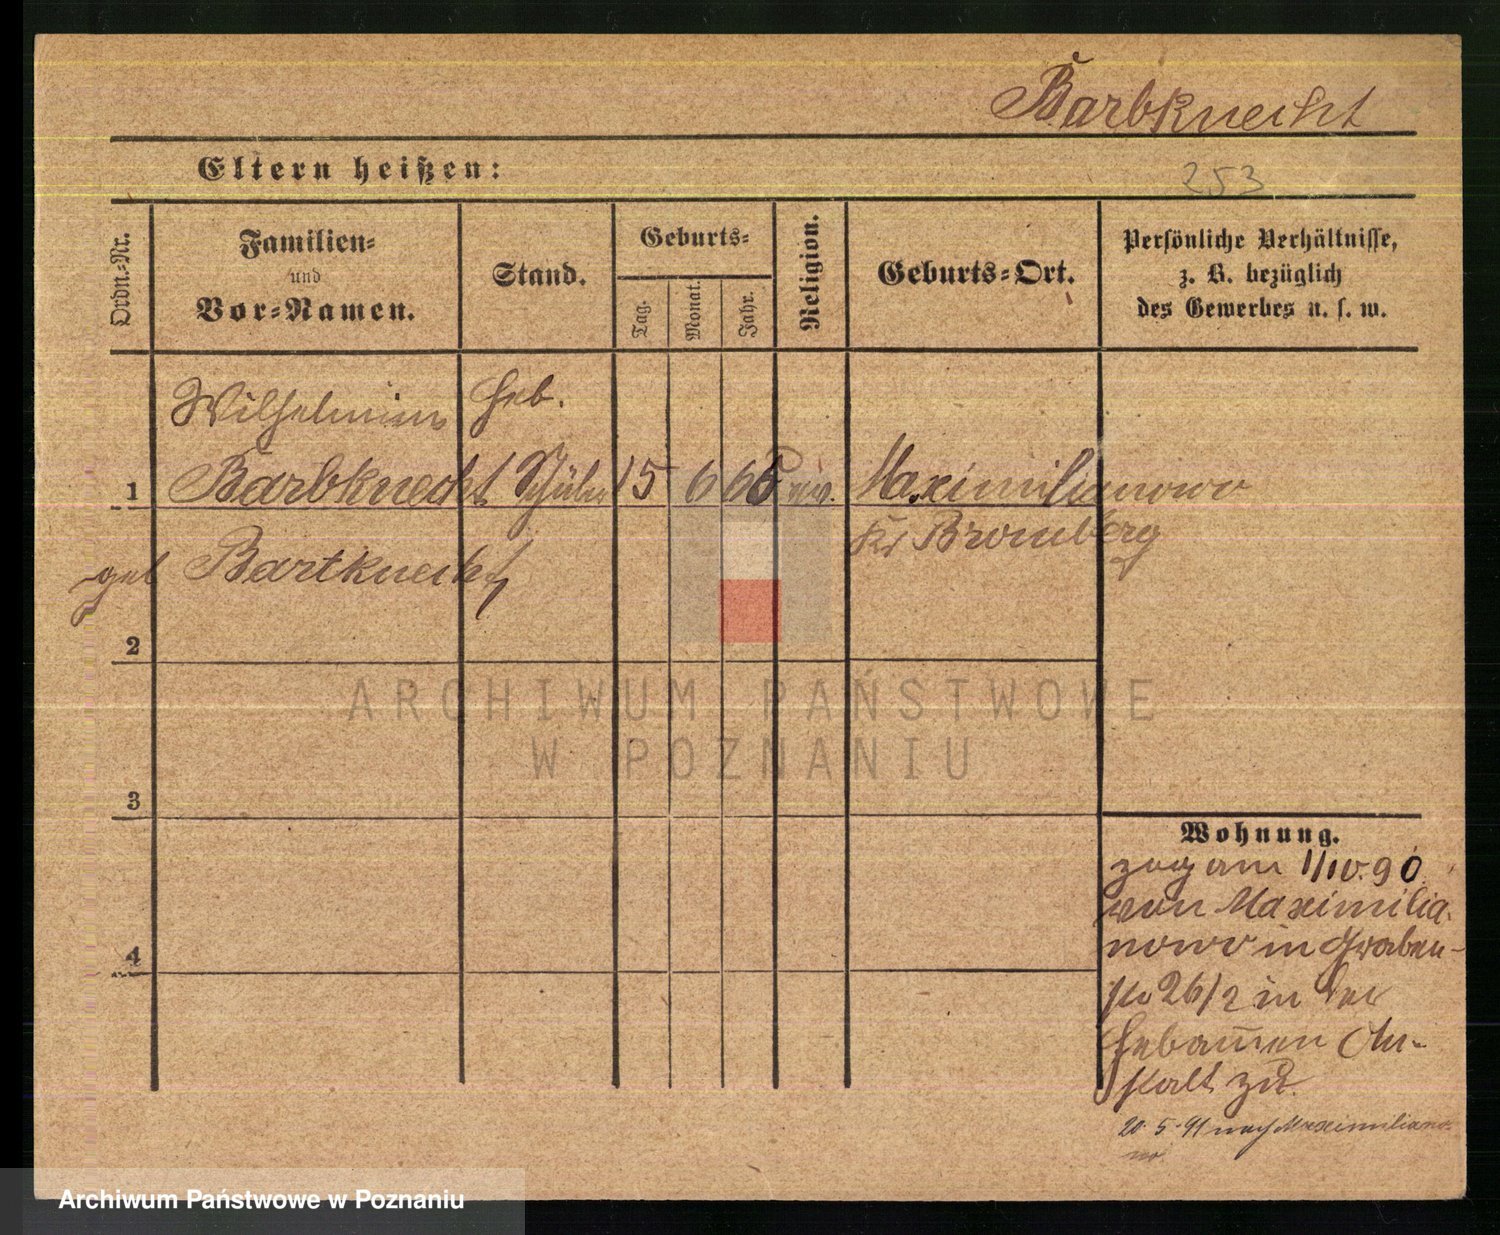 Barbknecht
Eltern heißen:
253
Ordn.-Nr.
Familien-
und
Vor-Namen.
Stand.
Geburts-
Tag.
Monat.
Jahr.
Religion.
Geburts-Ort.
Persönliche Verhältnisse,
z. B. bezüglich
des Gewerbes u. s. w.
Wilhelmine Heb.
1 Barbknecht Schüln 15 6 66 ev. Maximilianowo
Kr Bromberg
geb Bartknecht
2
3
4
ARCHIWUM PAŃSTWOWE
W POZNANIU
Wohnung.
zog am 1/10.90
von Maximilia-
nowo in Graben-
str 26/2 in der
Hebam̄en An-
stalt zu.
20.5.91 nach Maximiliano-
wo
Archiwum Państwowe w Poznaniu